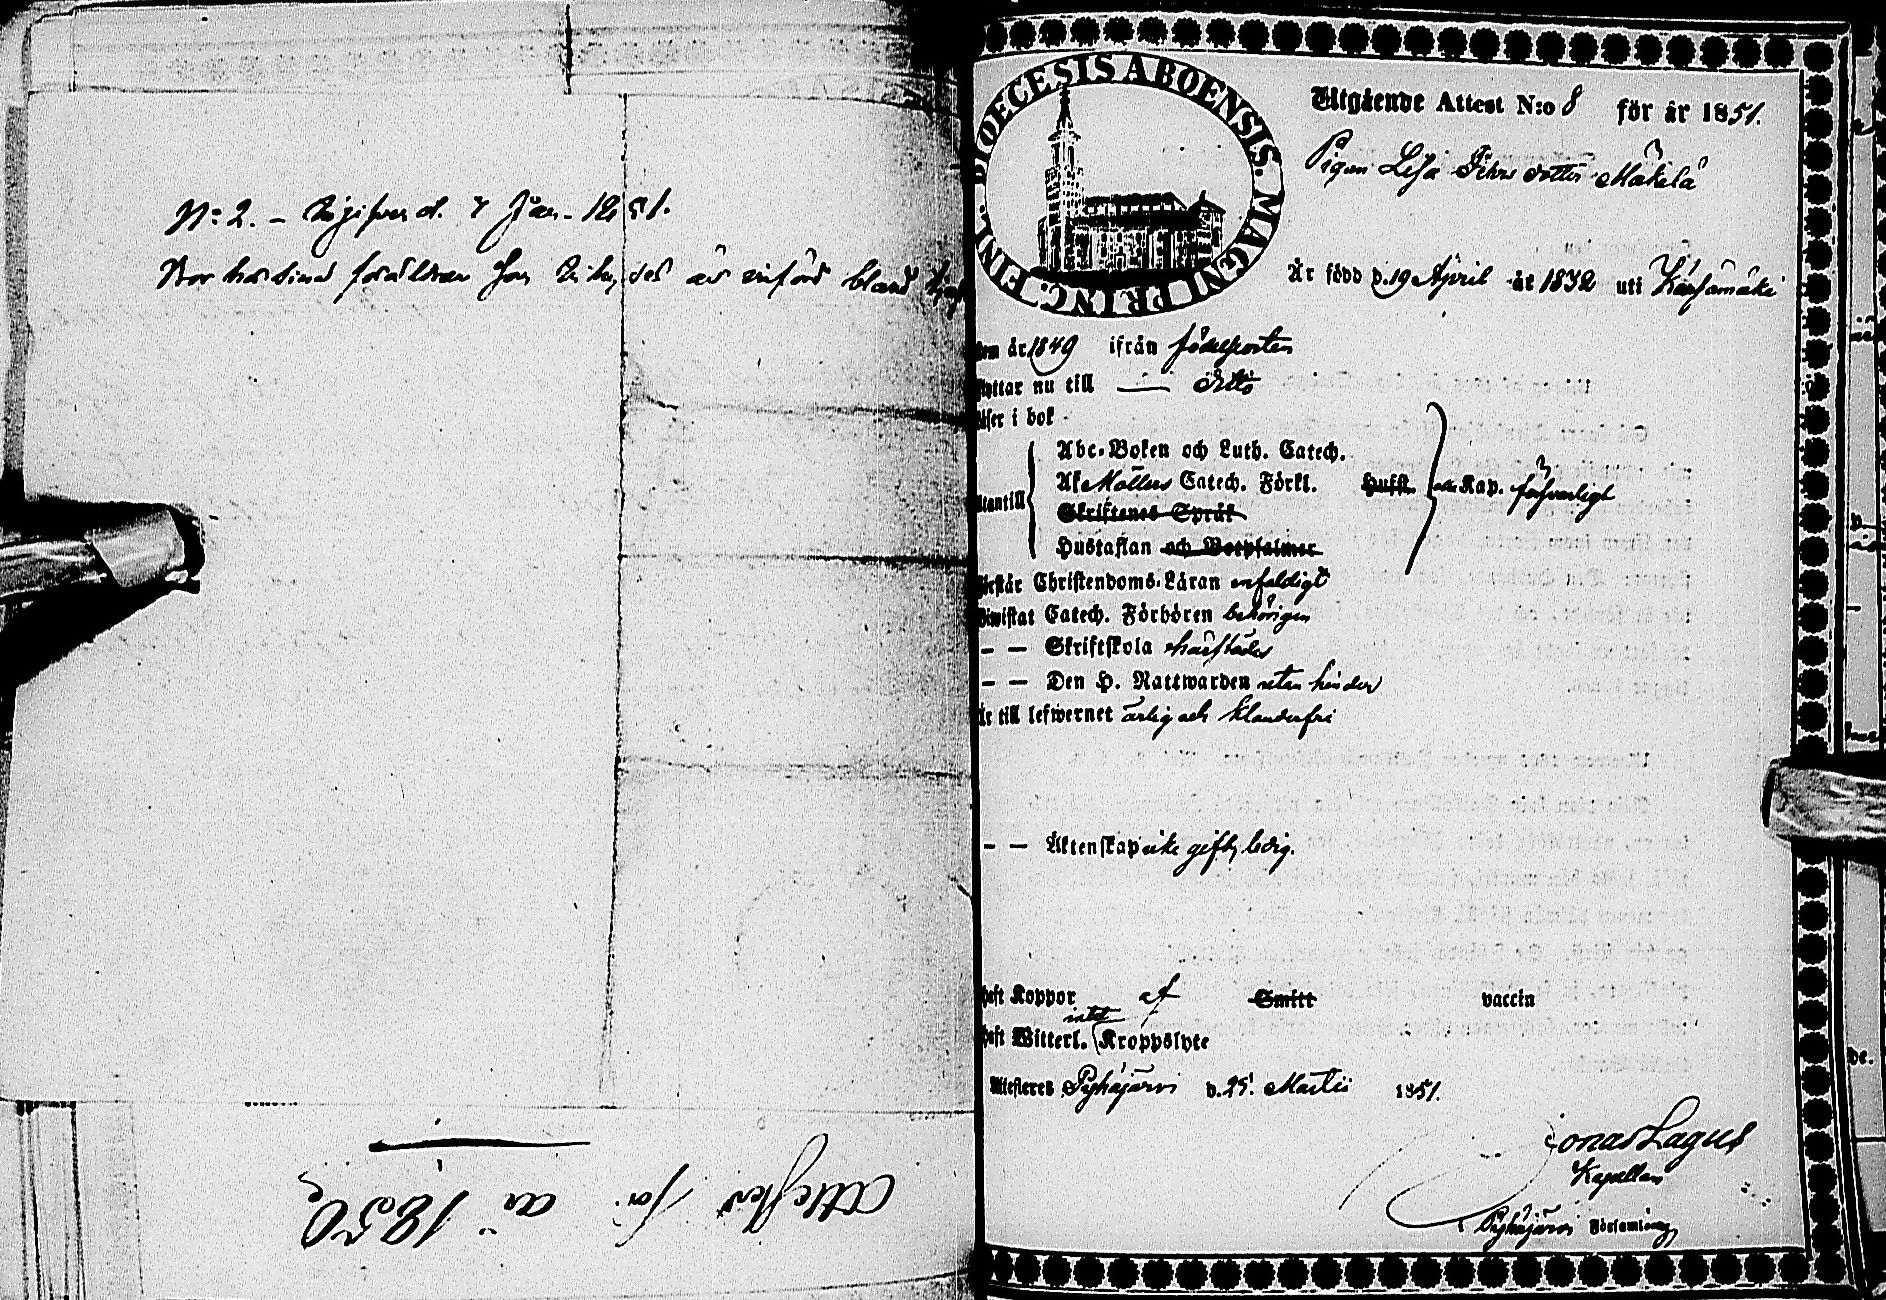 N:o 2. – Uppgifven d. 7 Jan. 1851.
Bor hos sina föräldrar
är införd bland
Attester för år 1850
DIOECESIS ABOENSIS. MAGNI PRINC. FINL.
Utgående Attest N:o 8 för år 1851.
Pigan Lisa Mäkelä
Är född d. 19 April år 1832 uti Kärsämäki
kom år 1849 ifrån födelseorten
flyttar nu till — dito
läser i bok
Abc-Boken och Luth. Catech.
utantill Af Möllers Catech. Förkl. Huffst. Kap. försvarligt
Skriftenes Språk
Hustaflan och Botpsalmer
förstår Christendoms-Läran enfaldigt
biwistat Catech. Förhören behörigen
– – Skriftskola härstädes
– – Den H. Nattwarden utan hinder
Är till lefwernet ärlig och klanderfri
– – Äktenskap icke gift, ledig.
haft Koppor af Smitt vaccin
intet
haft Witterl. Kroppslyte
Attesteres Pyhäjärvi d. 25 Martii 1851.
Jonas Lagus
Kapellan
i Pyhäjärvi Församling